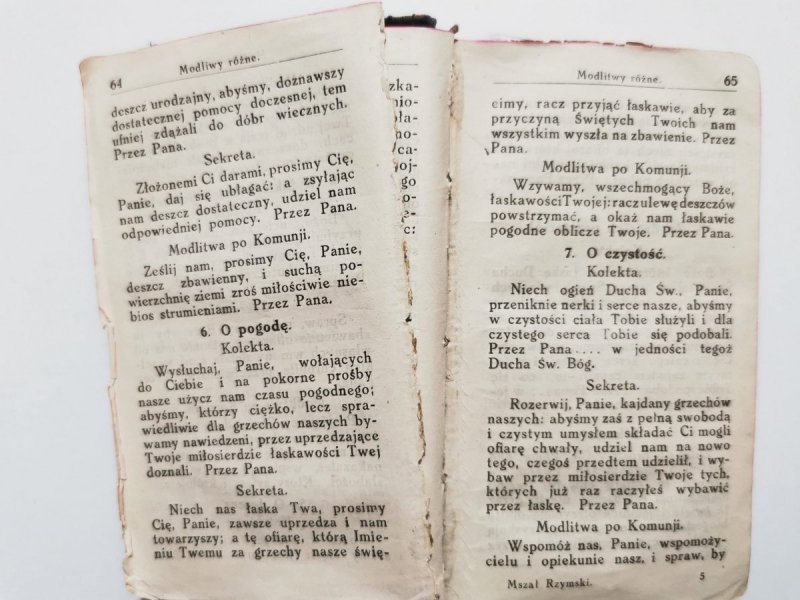 64 Modliwy różne.
deszcz urodzajny, abyśmy, doznawszy
dostatecznej pomocy doczesnej, tem
ufniej zdążali do dóbr wiecznych.
Przez Pana.
Sekreta.
Złożonemi Ci darami, prosimy Cię,
Panie, daj się ubłagać: a zsyłając
nam deszcz dostateczny, udziel nam
odpowiedniej pomocy. Przez Pana.
Modlitwa po Komunji.
Ześlij nam, prosimy Cię, Panie,
deszcz zbawienny, i suchą po-
wierzchnię ziemi zroś miłościwie nie-
bios strumieniami. Przez Pana.
6. O pogodę.
Kolekta.
Wysłuchaj, Panie, wołających
do Ciebie i na pokorne prośby
nasze użycz nam czasu pogodnego;
abyśmy, którzy ciężko, lecz spra-
wiedliwie dla grzechów naszych by-
wamy nawiedzeni, przez uprzedzające
Twoje miłosierdzie łaskawości Twej
doznali. Przez Pana.
Sekreta.
Niech nas łaska Twa, prosimy
Cię, Panie, zawsze uprzedza i nam
towarzyszy; a tę ofiarę, którą Imie-
niu Twemu za grzechy nasze świę-
Modlitwy różne. 65
cimy, racz przyjąć łaskawie, aby za
przyczyną Świętych Twoich nam
wszystkim wyszła na zbawienie. Przez
Pana.
Modlitwa po Komunji.
Wzywamy, wszechmogący Boże,
łaskawości Twojej: racz ulewę deszczów
powstrzymać, a okaż nam łaskawie
pogodne oblicze Twoje. Przez Pana.
7. O czystość.
Kolekta.
Niech ogień Ducha Św., Panie,
przeniknie nerki i serce nasze, abyśmy
w czystości ciała Tobie służyli i dla
czystego serca Tobie się podobali.
Przez Pana.... w jedności tegoż
Ducha Św. Bóg.
Sekreta.
Rozerwij, Panie, kajdany grzechów
naszych: abyśmy zaś z pełną swobodą
i czystym umysłem składać Ci mogli
ofiarę chwały, udziel nam na nowo
tego, czegoś przedtem udzielił, i wy-
baw przez miłosierdzie Twoje tych,
których już raz raczyłeś wybawić
przez łaskę. Przez Pana.
Modlitwa po Komunji.
Wspomóż nas, Panie, wspomoży-
cielu i opiekunie nasz, i spraw, by
Mszał Rzymski. 5